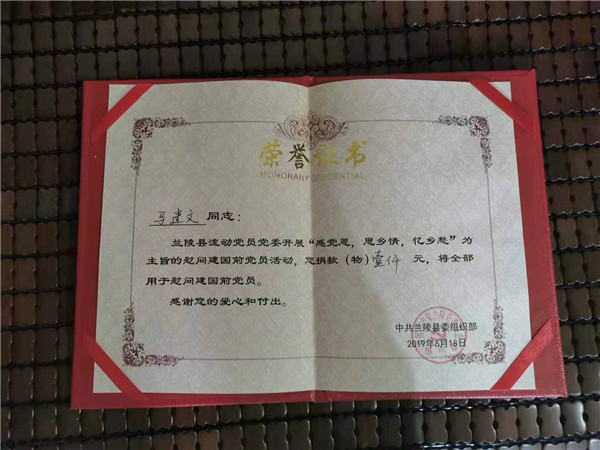 荣誉证书
HONORARY CREDENTIAL
马建文 同志：
兰陵县流动党员党委开展“感党恩，思乡情，忆乡愁”为
主旨的慰问建国前党员活动，您捐款（物）壹仟 元，将全部
用于慰问建国前党员。
感谢您的爱心和付出。
中共兰陵县委组织部
2019年6月18日